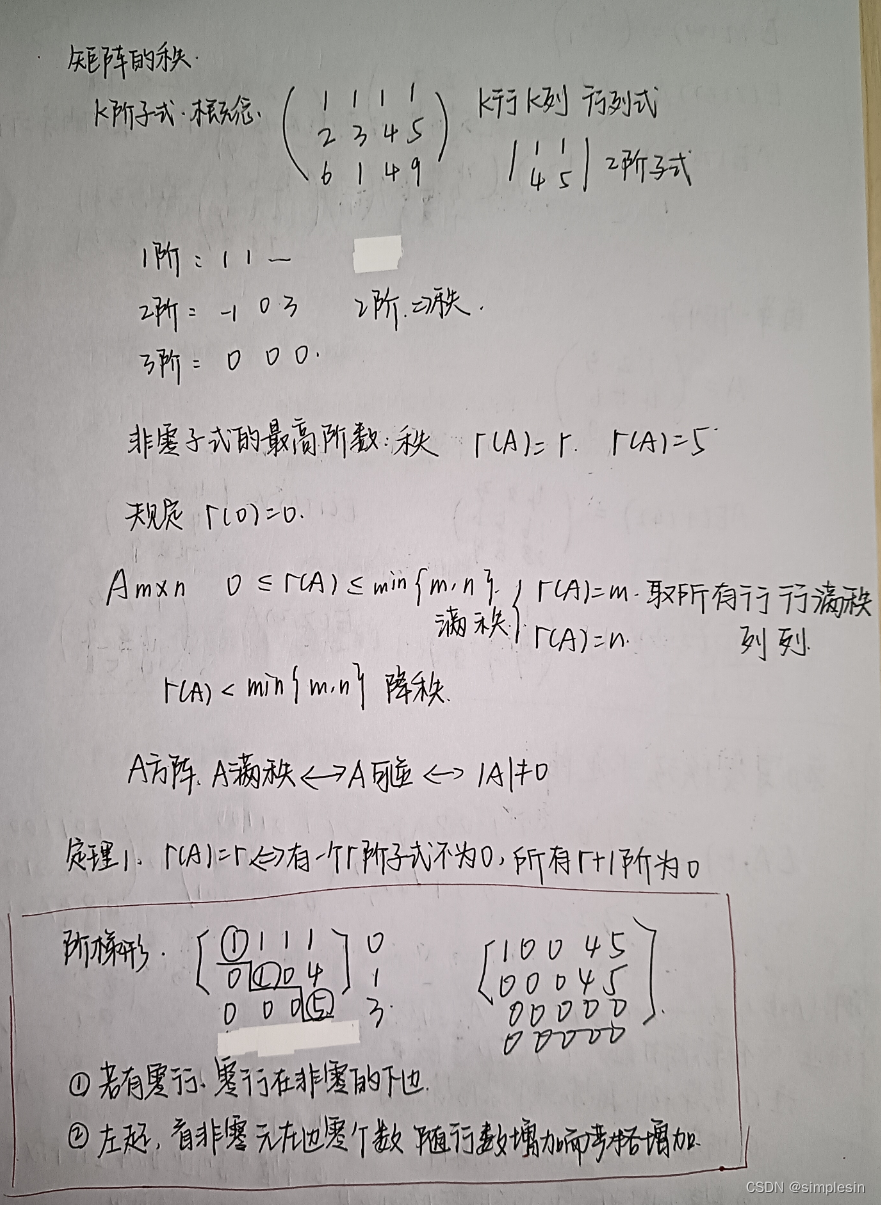 矩阵的秩.
K阶子式.概念. ( 1 1 1 1 K行K列 行列式
2 3 4 5
6 1 4 9 ) | 1 1
4 5 | 2阶子式
1阶: 1 1 —
2阶= -1 0 3 2阶⇒秩.
3阶= 0 0 0.
非零子式的最高阶数:秩 r(A)=r. r(A)=5
规定 r(0)=0.
Am×n 0≤r(A)≤min{m,n}.
满秩.{ r(A)=m.取所有行 行满秩
r(A)=n. 列 列.
r(A)<min{m,n} 降秩.
A方阵、A满秩⟷A可逆⟷|A|≠0
定理1. r(A)=r⟺有一个r阶子式不为0,所有r+1阶为0
阶梯形. [ ① 1 1 1 ] 0 [ 1 0 0 4 5
0 ① 0 4 1 0 0 0 4 5
0 0 0 ⑤ 3. 0 0 0 0 0
0 0 0 0 0 ]
①若有零行、零行在非零的下边.
②左起,首非零元左边零个数 随行数增加而严格增加.
CSDN @simplesin